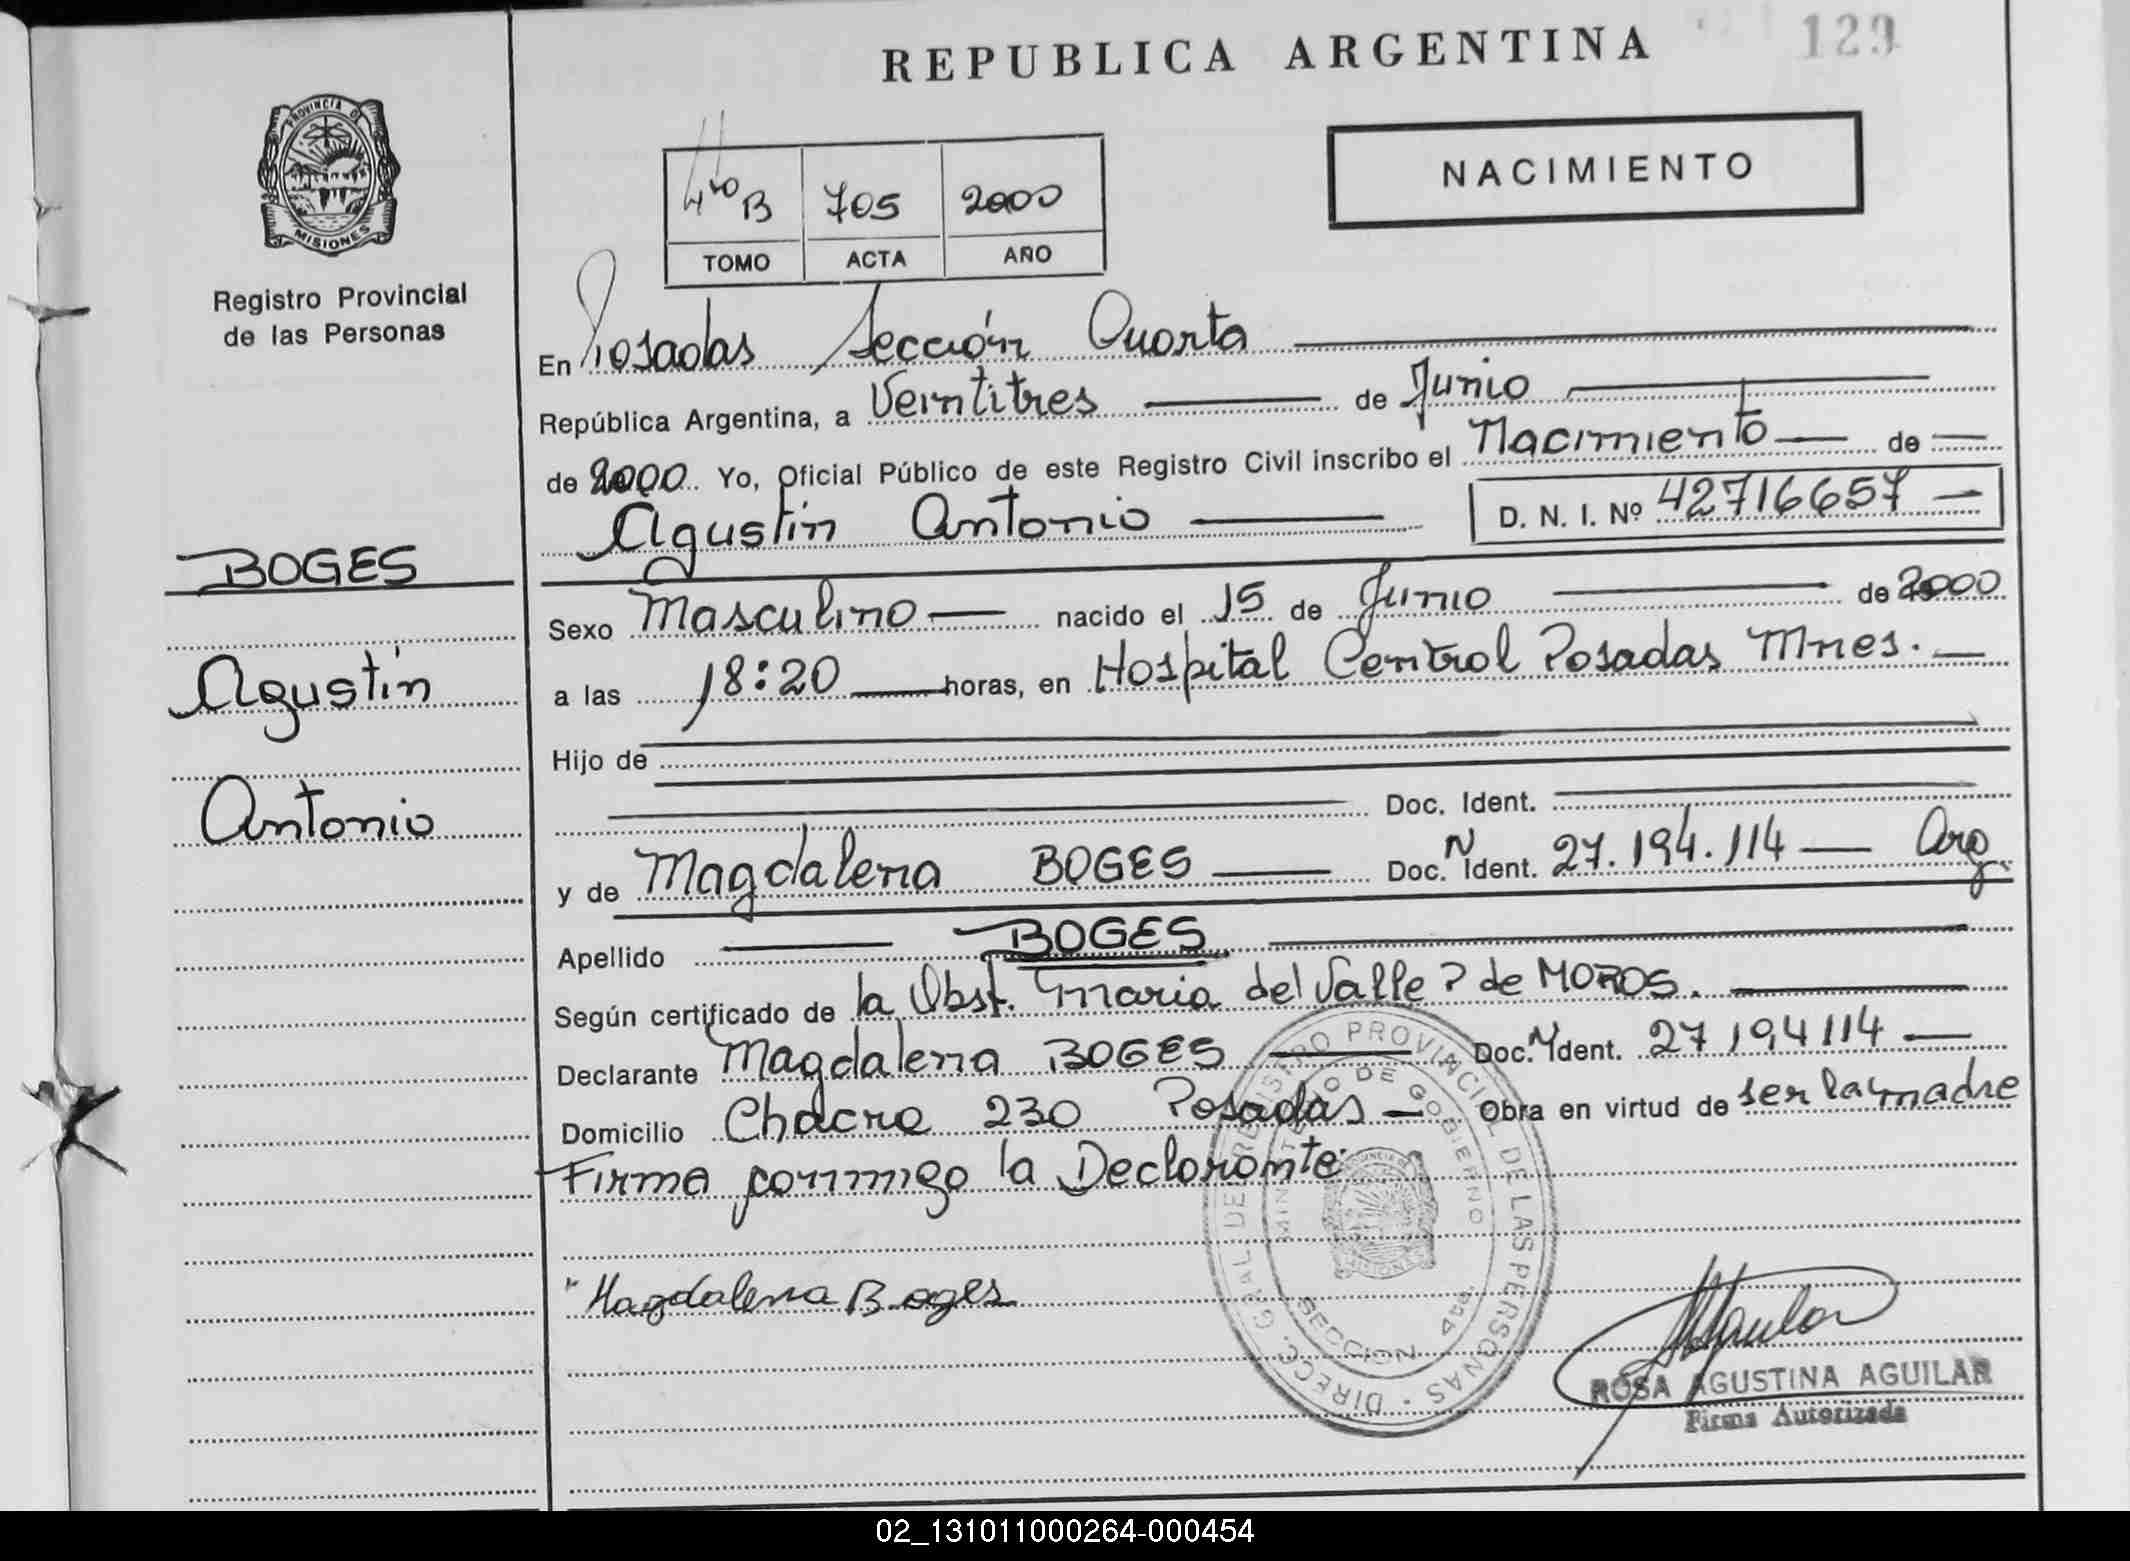 REPUBLICA ARGENTINA
129
PROVINCIA DE
MISIONES
Registro Provincial
de las Personas
4to B 705 2000
TOMO ACTA AÑO
NACIMIENTO
En Posadas Sección Cuarta
República Argentina, a Veintitres de Junio
de 2000 Yo, Oficial Público de este Registro Civil inscribo el Nacimiento de
Agustín Antonio D. N. I. Nº 42716657
BOGES
Agustín
Antonio
Sexo Masculino nacido el 15 de Junio de 2000
a las 18:20 horas, en Hospital Central Posadas Mnes.
Hijo de
Doc. Ident.
y de Magdalena BOGES Doc. N Ident. 27.194.114 Arg.
Apellido BOGES
Según certificado de la Obst. Maria del Valle P de MOROS.
Declarante Magdalena BOGES Doc. N Ident. 27194114
Domicilio Chacra 230 Posadas Obra en virtud de ser la madre
Firma conmigo la Declarante
Magdalena Boges
DIRECC. GRAL DE REGISTRO PROVINCIAL DE LAS PERSONAS
MINISTERIO DE GOBIERNO
MISIONES
SECCION 4ta.
ROSA AGUSTINA AGUILAR
Firma Autorizada
02_131011000264-000454